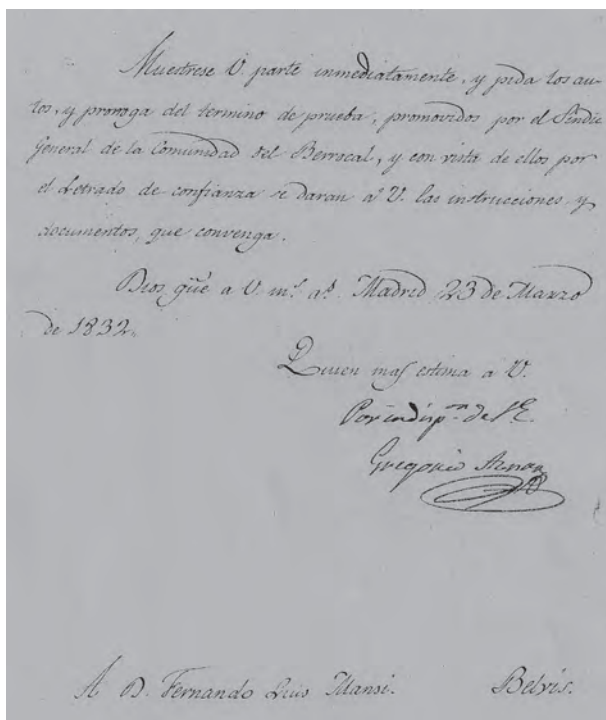 Muestrese V. parte inmediatamente, y pida los au-
tos, y proroga del termino de prueba, promovidos por el Sindic
General de la Comunidad del Berrocal, y con vista de ellos por
el Letrado de confianza se daran a V. las instrucciones y
documentos, que convenga.
Dios güe a V. ms. as. Madrid 23 de Marzo
de 1832.
Quien mas estima a V.
Por indispon. de S.E.
Gregorio Aznar
A D. Fernando Luis Mansi. Belvis.